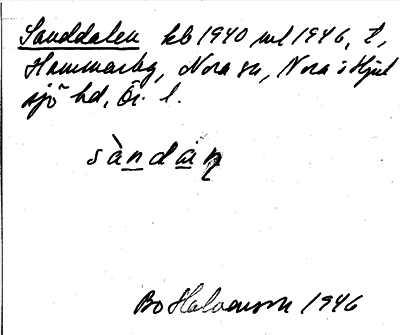 Sanddalen kb 1940 ml 1946, t,
Hammarby, Nora sn, Nora o Hjul
sjö hd, Ör. l.
sàndán
Bo Halvarsson 1946